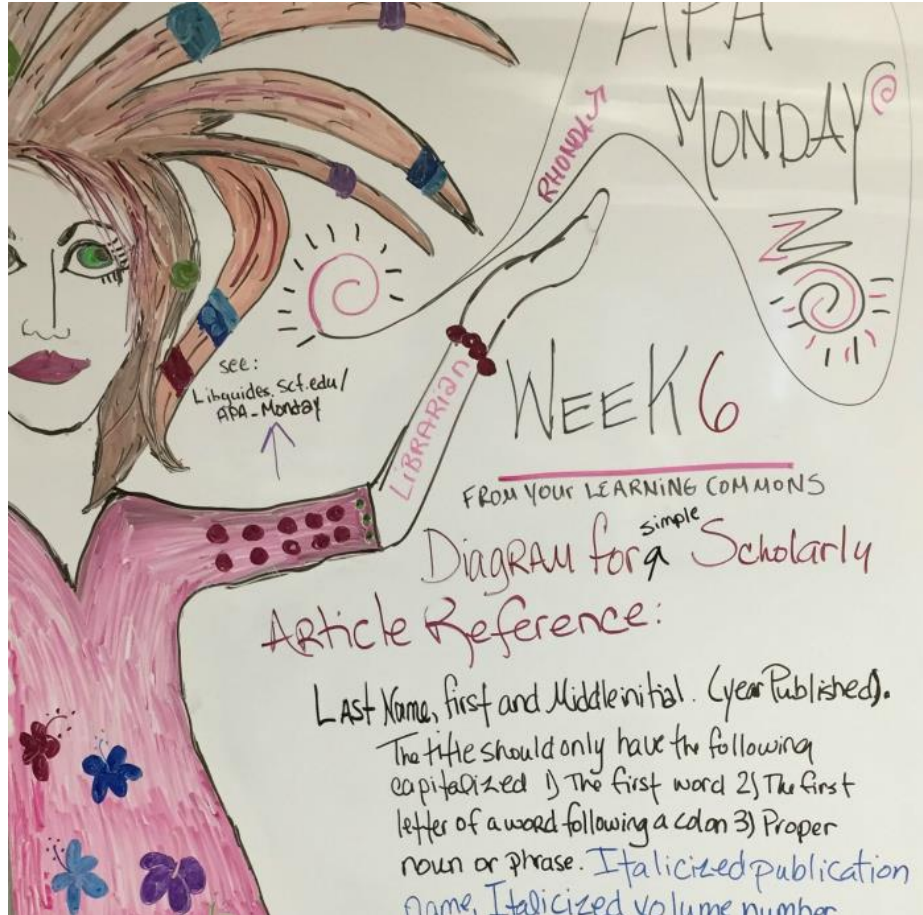 APA
MONDAY
RHONDA
see:
Libguides.scf.edu/
APA-Monday
LIBRARIAN
WEEK 6
FROM YOUR LEARNING COMMONS
DiagRAM for a simple Scholarly
ARticle Reference:
LAst Name, first and Middle initial. (year Published).
The title should only have the following
capitalized 1) The first word 2) The first
letter of a word following a colon 3) Proper
noun or phrase. Italicized publication
name, Italicized volume number